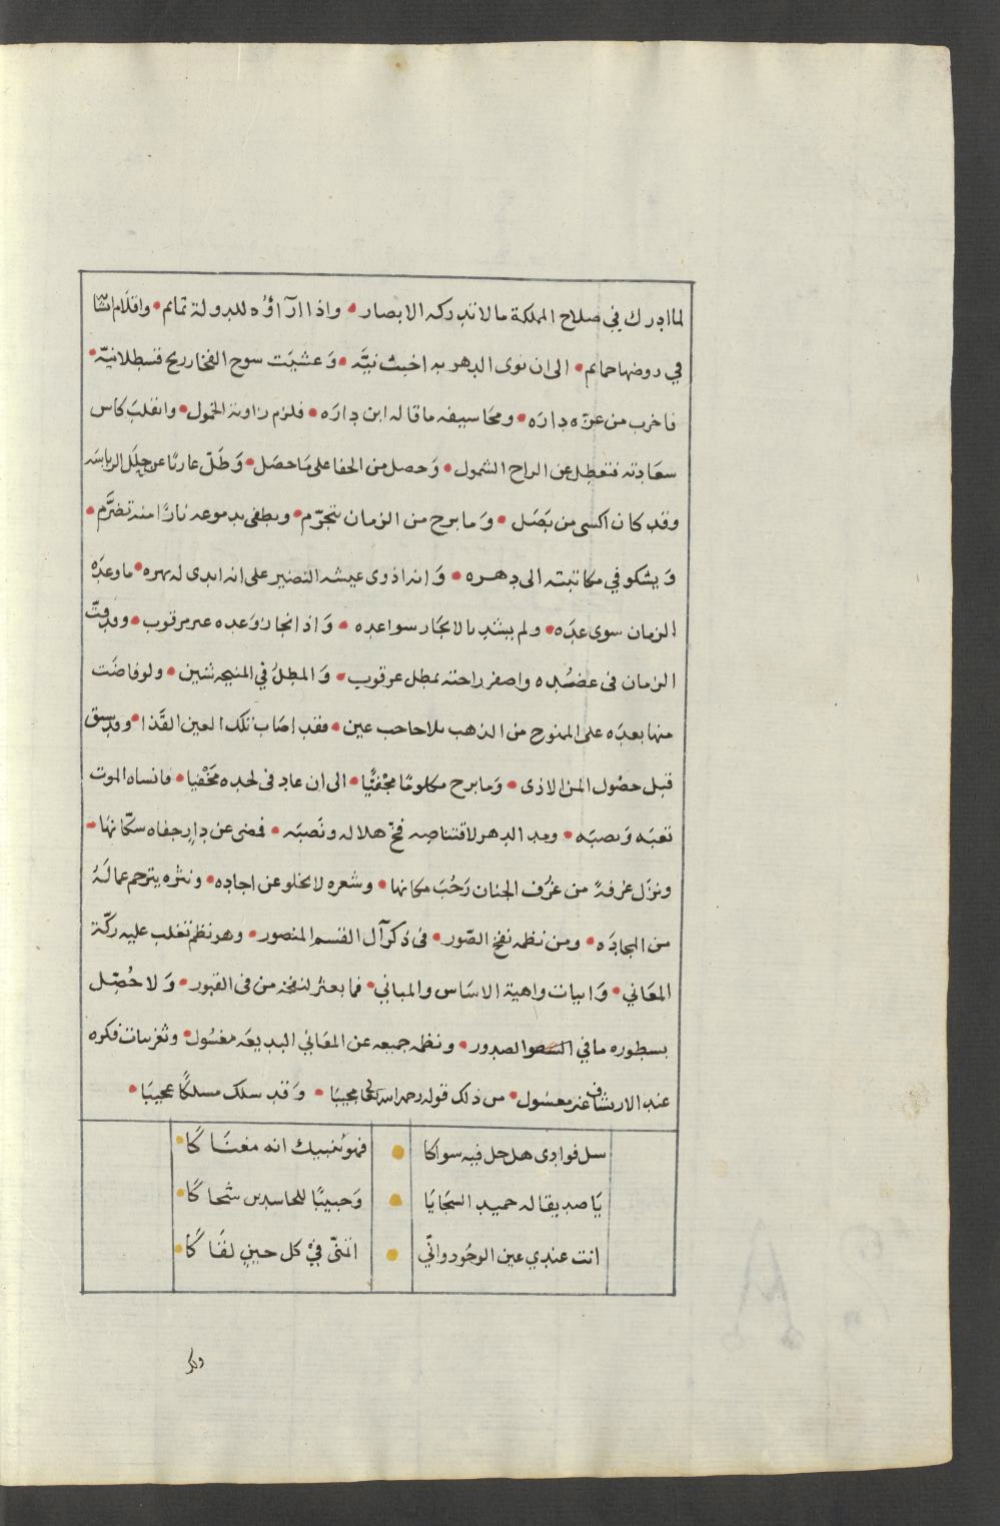 لما ادرك في صلاح المملكة ما لا تدركه الابصار • واذا ارآؤه للدولة تمائم • واقلام انشائه
في روضها حمائم • الى ان نوى الدهر به اخبث نيَّه • وَعشيَت سوح الفخار ريح قسطلانيّه •
فاخرب من عزّه دارَه • ومحَا سيفه ما قاله ابن دارَه • فلزم زاوية الخمول • وانقلبَ كاس
سعَادته فتعطل عن الراح الشمول • وَحصل من الحفا على مَا حصَل • وَظلّ عاريًا عن حِلَل الرياسَه
وقد كان اكسى من بَصَل • وَما برح من الزمان يتجرّم • ويطفى بدموعه نارًا منه تضرَّم •
وَيشكو في مكاتبته الى دهره • وَانه اذوى عيشه النضير على انه ابدى له نهره • ما وعدَه
الزمان سوى عدَه • ولم يشد بالانجَاز سواعده • وَاذا انجاز وَعده غير مرقوب • وقد فتّ
الزمان فى عضُده واصفر راحته بمطل عرقوب • وَالمطلُ في المنيحه شين • ولو فاضَت
منها بعدَه على الممنوح من الذهب بلا حاجب عين • فقد اصَاب تلك العين القَذا • وقد سبق
قبل حصُول المن الاذى • وَما برح مكلومًا مجْفيًّا • الى ان عاد فى لحده مخَفيا • فانساه الموت
تعبَه وَنصبَه • ومد الدهر لاقتناصه فخّ هلاله ونَصبَه • فمضى عن دارٍ جفاه سكّانها •
ونزَل غرفةً من غرُف الجنان رَحُبَ مكانها • وشعره لا يخلو عن اجاده • ونثره يترجم عما لَهُ
من المجادَه • ومن نظمه نفخ الصّور • فى ذكر آل القسم المنصور • وهو نظم تغلب عليه ركّة
المعَاني • وَابيات واهية الاسَاس والمباني • فما بعثر لنفخه من فى القبور • وَلا حُصّل
بسطوره ما في الصدور • ونظمه جميعه عن المعَاني البديعَه مغسُول • وثغر بنات فكره
عند الارتشاف غير معسُول • من ذلك قوله رحمه الله تعالى مجيبًا • وَقد سلك مسلكًا عجيبَا •
سل فوادى هل حل فيه سواكا • فهوَ ينبيك انه مغنَاكَا •
يَا صديقا له حميد السَجَايَا • وَحبيبًا للحاسدين شجاكَا •
انت عندي عين الوجُود وانّي • اتمنّى فيْ كل حينٍ لقَاكَا •